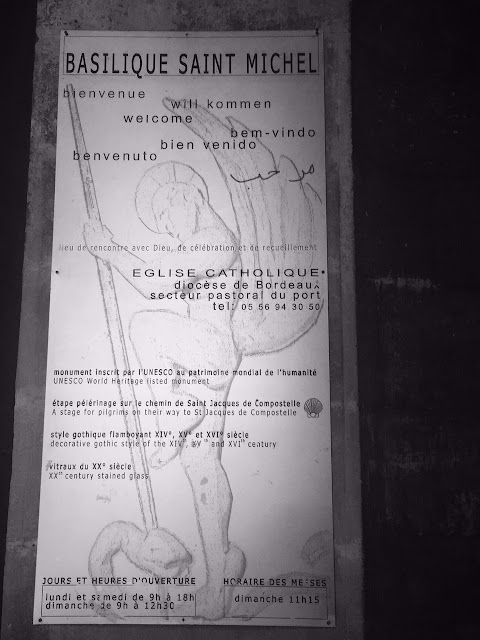 BASILIQUE SAINT MICHEL
bienvenue
will kommen
welcome
bem-vindo
bien venido
benvenuto
مرحب
lieu de rencontre avec Dieu, de célébration et de recueillement
EGLISE CATHOLIQUE
diocèse de Bordeaux
secteur pastoral du port
tel: 05 56 94 30 50
monument inscrit par l'UNESCO au patrimoine mondial de l'humanité
UNESCO World Heritage listed monument
étape pélérinage sur le chemin de Saint Jacques de Compostelle
A stage for pilgrims on their way to St Jacques de Compostelle
style gothique flamboyant XIVe, XVe et XVIe siècle
decorative gothic style of the XIVth, XVth and XVIth century
vitraux du XXe siècle
XXth century stained glass
JOURS ET HEURES D'OUVERTURE
lundi et samedi de 9h à 18h
dimanche de 9h à 12h30
HORAIRE DES MESSES
dimanche 11h15